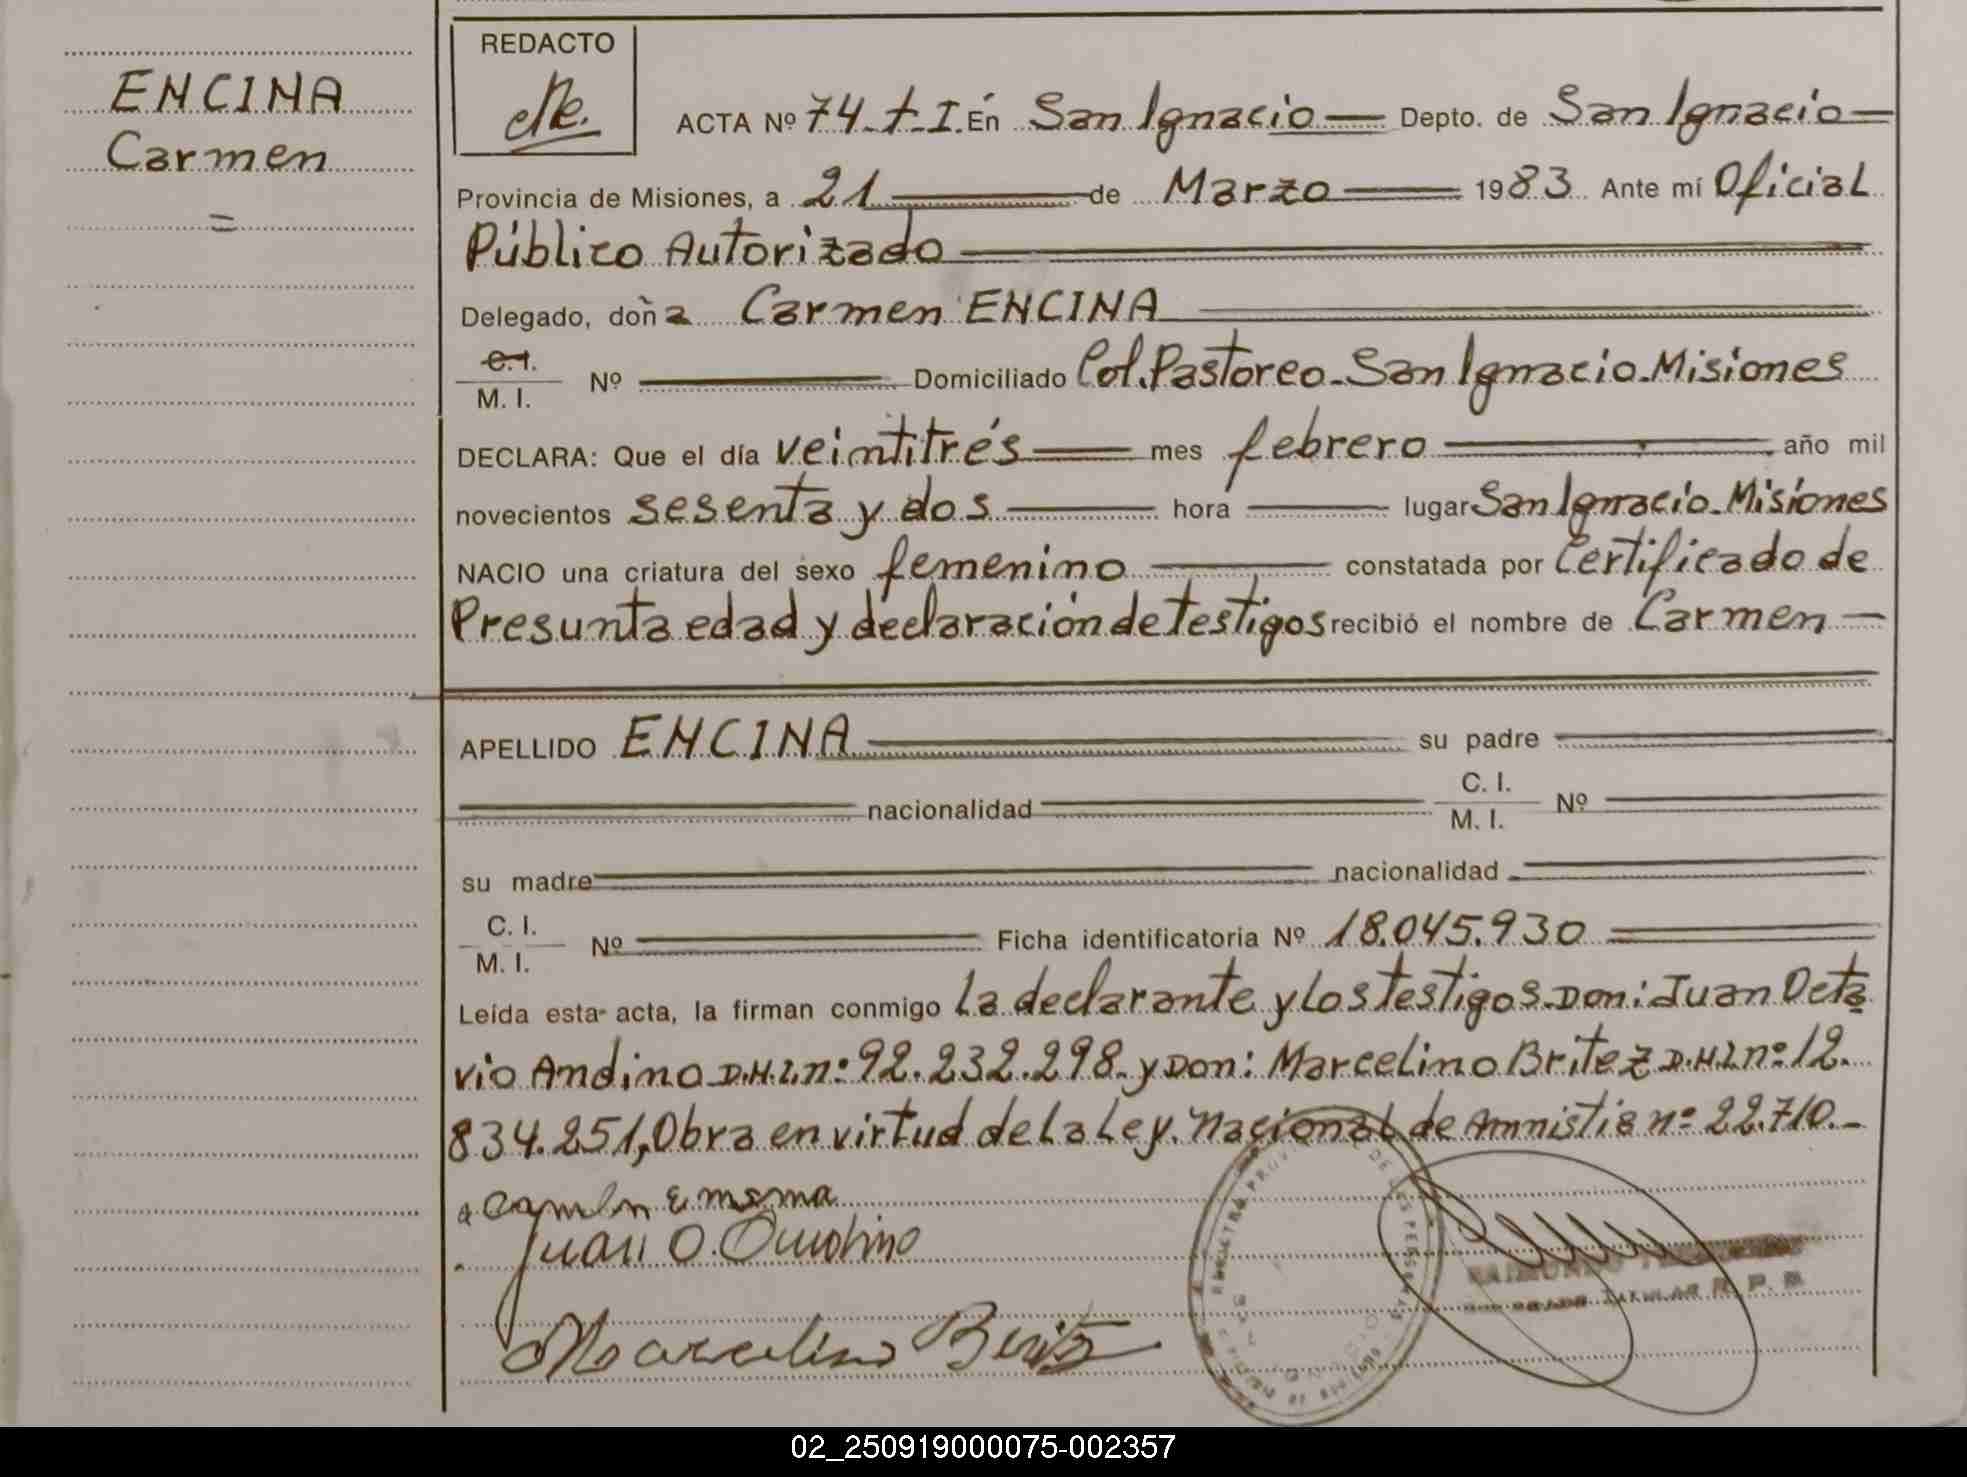 ENCINA
Carmen
=
REDACTO
ACTA Nº 74-t-I. En San Ignacio — Depto. de San Ignacio —
Provincia de Misiones, a 21 de Marzo 1983. Ante mí Oficial
Público Autorizado
Delegado, doña Carmen ENCINA
C.I.
M. I. Nº Domiciliado Col. Pastoreo-San Ignacio-Misiones
DECLARA: Que el día veintitrés mes febrero año mil
novecientos sesenta y dos hora lugar San Ignacio-Misiones
NACIO una criatura del sexo femenino constatada por Certificado de
Presunta edad y declaración de testigos recibió el nombre de Carmen —
APELLIDO ENCINA su padre
nacionalidad C. I.
M. I. Nº
su madre nacionalidad
C. I.
M. I. Nº Ficha identificatoria Nº 18.045.930
Leída esta acta, la firman conmigo la declarante y los testigos. Don: Juan Octa
vio Andino D.N.I. nº: 92.232.298. y Don: Marcelino Britez D.N.I. nº 12.
834.251, Obra en virtud de la Ley. Nacional de Amnistia nº 22.710.-
Juan O.
Marcelino
R. P. P.
02_250919000075-002357